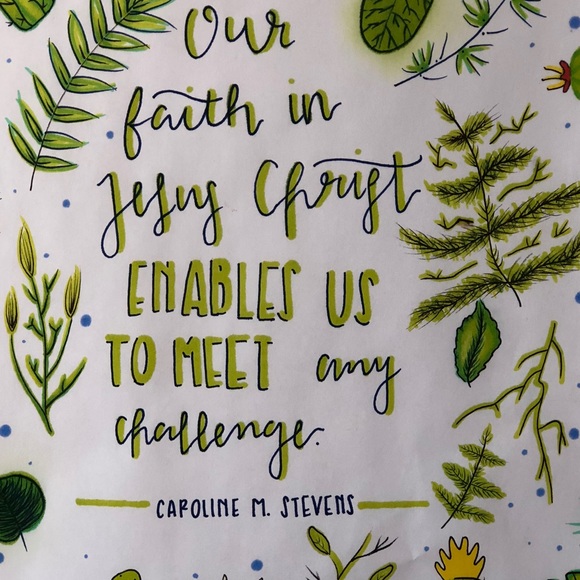 Our
faith in
Jesus Christ
ENABLES US
TO MEET any
challenge.
CAROLINE M. STEVENS